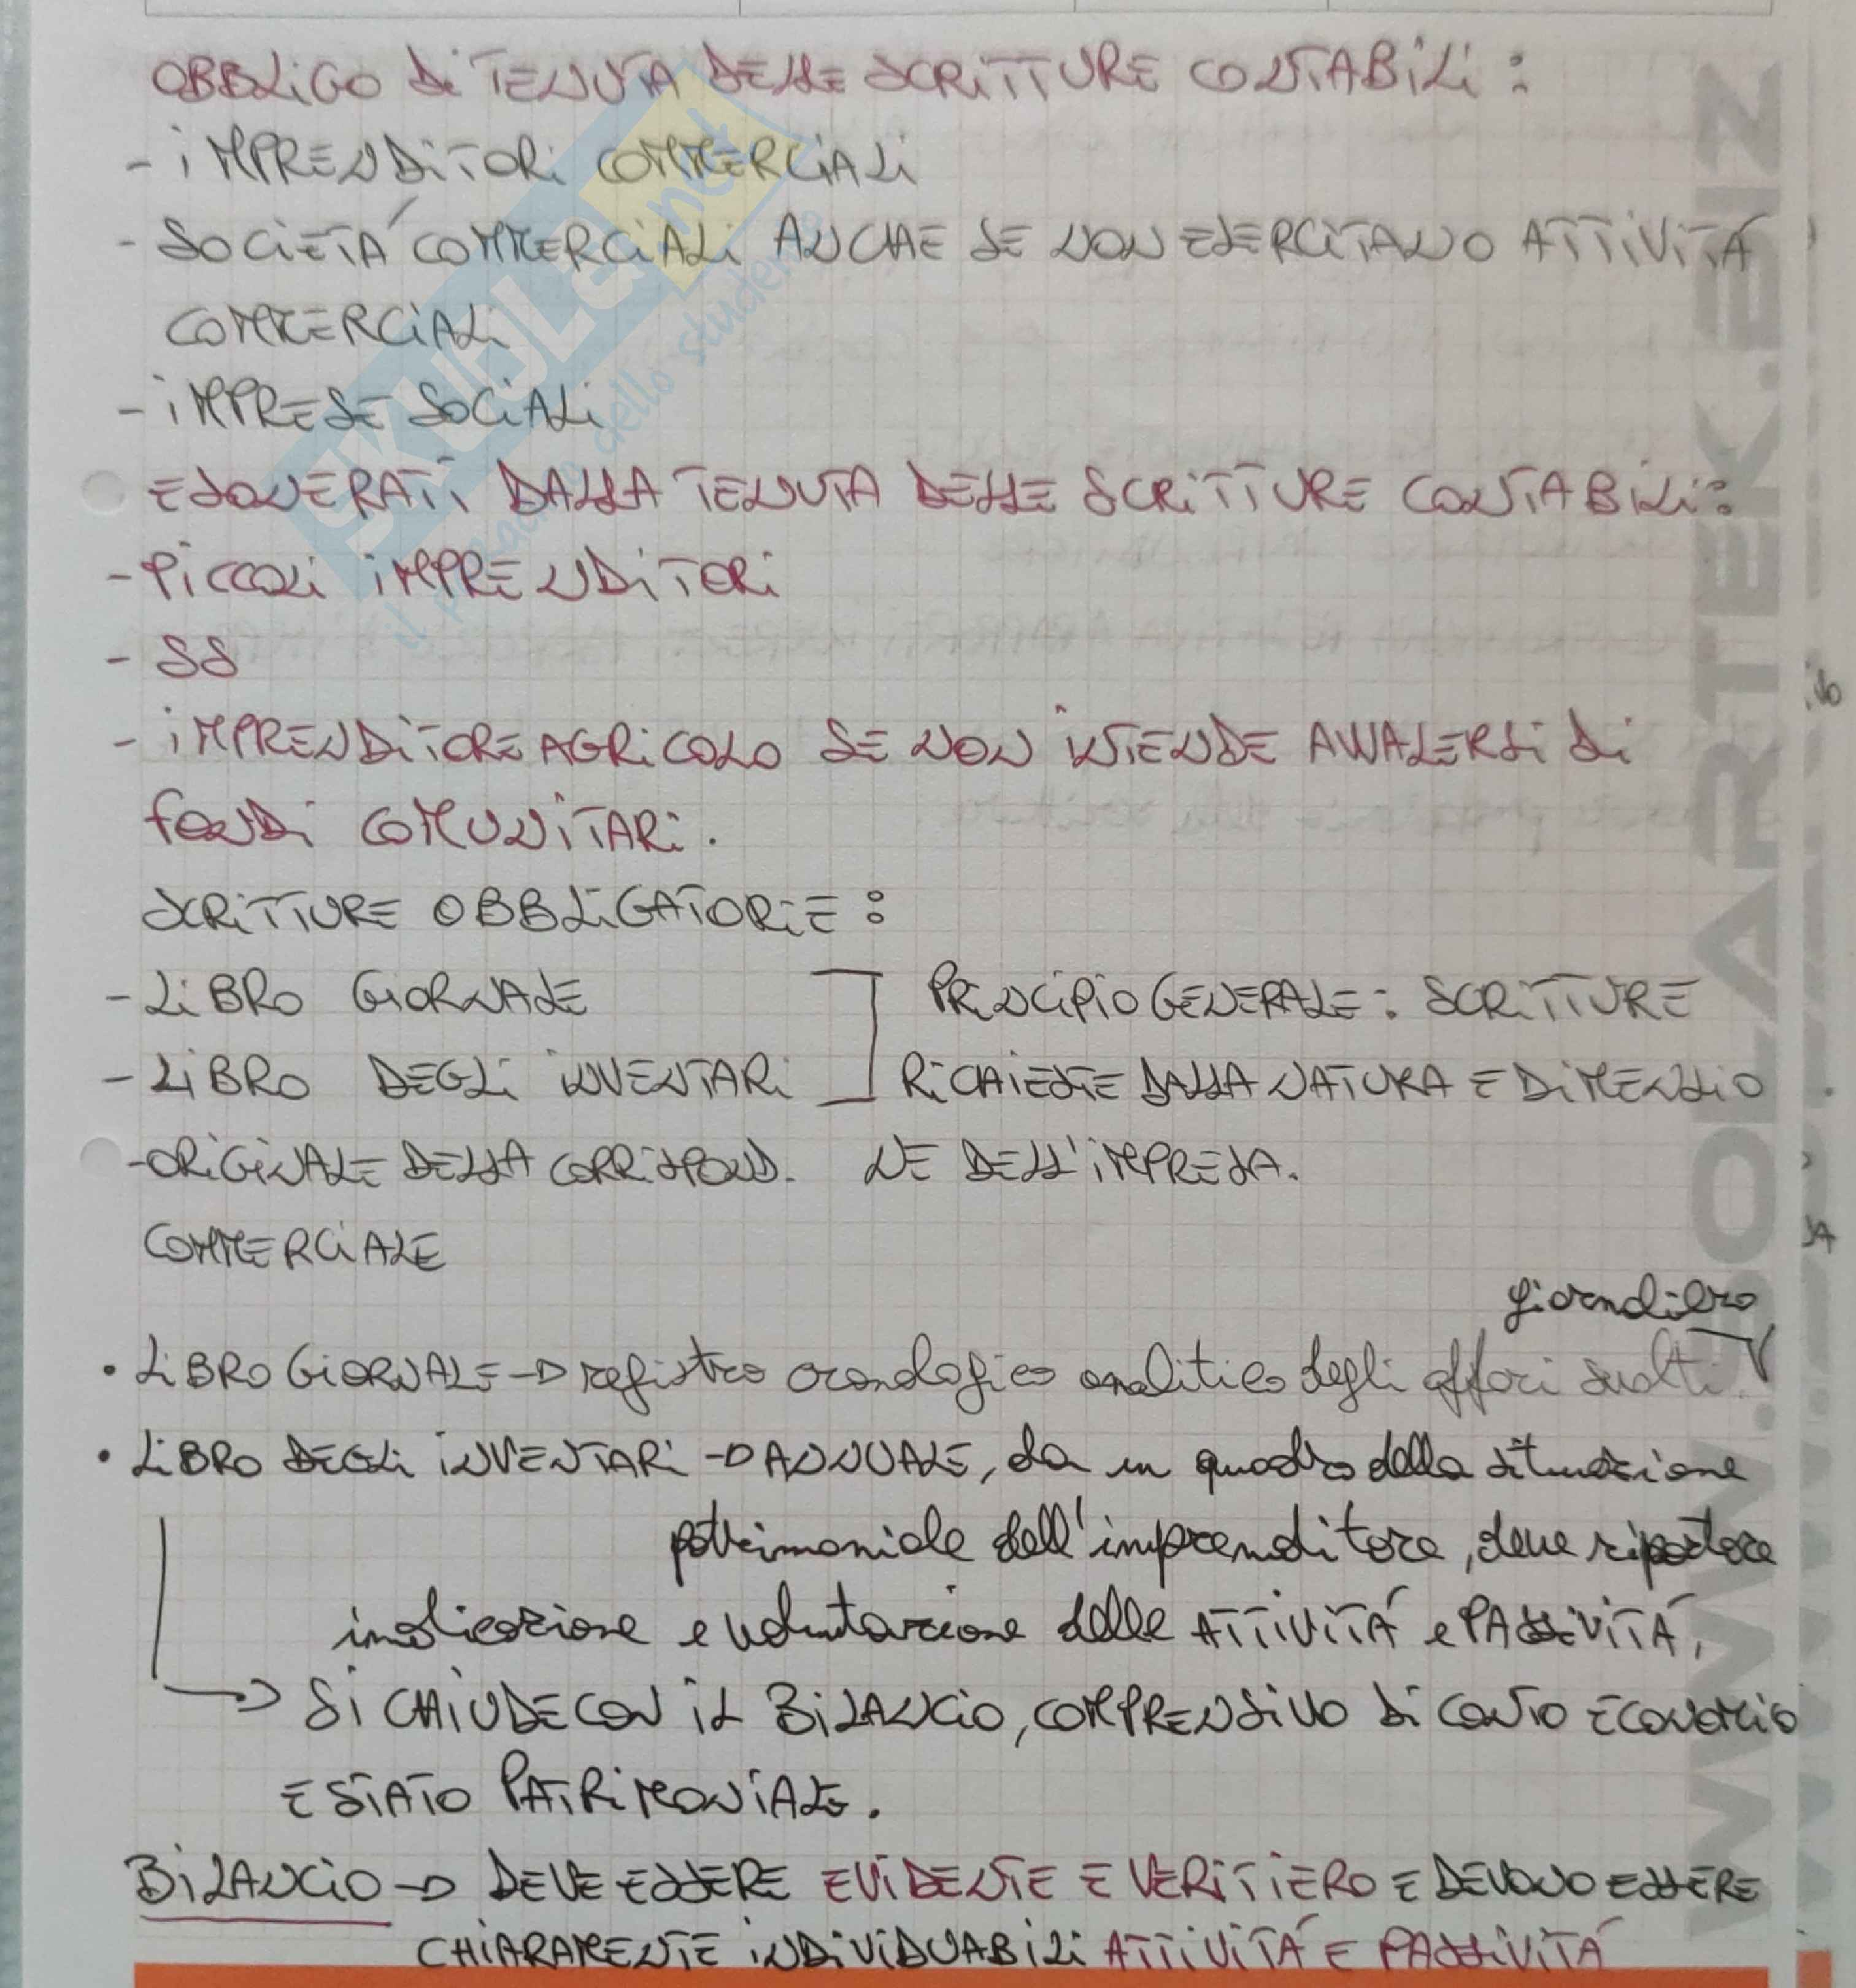 OBBLIGO DI TENUTA DELLE SCRITTURE CONTABILI :
- IMPRENDITORI COMMERCIALI
- SOCIETÁ COMMERCIALI ANCHE SE NON ESERCITANO ATTIVITÁ
COMMERCIALI
- IMPRESE SOCIALI
ESONERATI DALLA TENUTA DELLE SCRITTURE CONTABILI:
- PICCOLI IMPRENDITORI
- SS
- IMPRENDITORE AGRICOLO SE NON INTENDE AVVALERSI DI
FONDI COMUNITARI.
SCRITTURE OBBLIGATORIE :
- LIBRO GIORNALE
- LIBRO DEGLI INVENTARI
- ORIGINALE DELLA CORRISPOND.
COMMERCIALE
PRINCIPIO GENERALE: SCRITTURE
RICHIESTE DALLA NATURA E DIMENSIO
NE DELL'IMPRESA.
giornaliero
• LIBRO GIORNALE → registro cronologico analitico degli affari svolti.
• LIBRO DEGLI INVENTARI → ANNUALE, da un quadro della situazione
patrimoniale dell'imprenditore, deve riportare
indicazione e valutazione delle ATTIVITÁ e PASSIVITÁ,
→ SI CHIUDE CON IL BILANCIO, COMPRENSIVO DI CONTO ECONOMICO
E STATO PATRIMONIALE.
BILANCIO → DEVE ESSERE EVIDENTE E VERITIERO E DEVONO ESSERE
CHIARAMENTE INDIVIDUABILI ATTIVITÁ E PASSIVITÁ
SKUOLA.net
il paradiso dello studente
WWW.POOLARTEK.BIZ